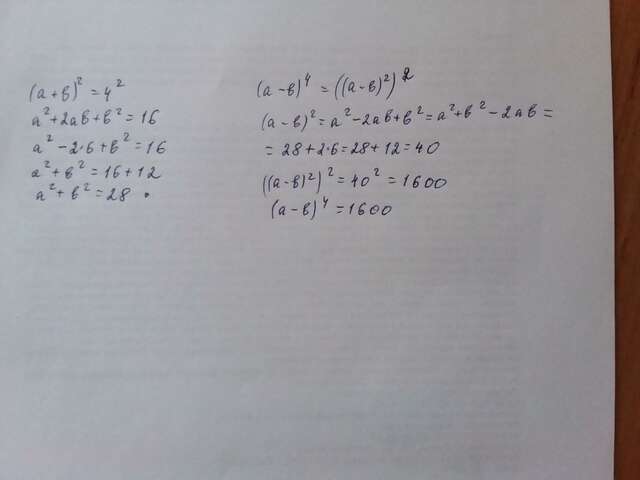 (a+b)² = 4²
a² + 2ab + b² = 16
a² - 2·6 + b² = 16
a² + b² = 16 + 12
a² + b² = 28 .
(a-b)⁴ = ((a-b)²)²
(a-b)² = a² - 2ab + b² = a² + b² - 2ab =
= 28 + 2·6 = 28 + 12 = 40
((a-b)²)² = 40² = 1600
(a-b)⁴ = 1600